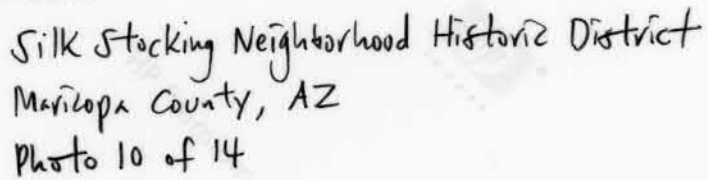 Silk Stocking Neighborhood Historic District
Maricopa County, AZ
Photo 10 of 14